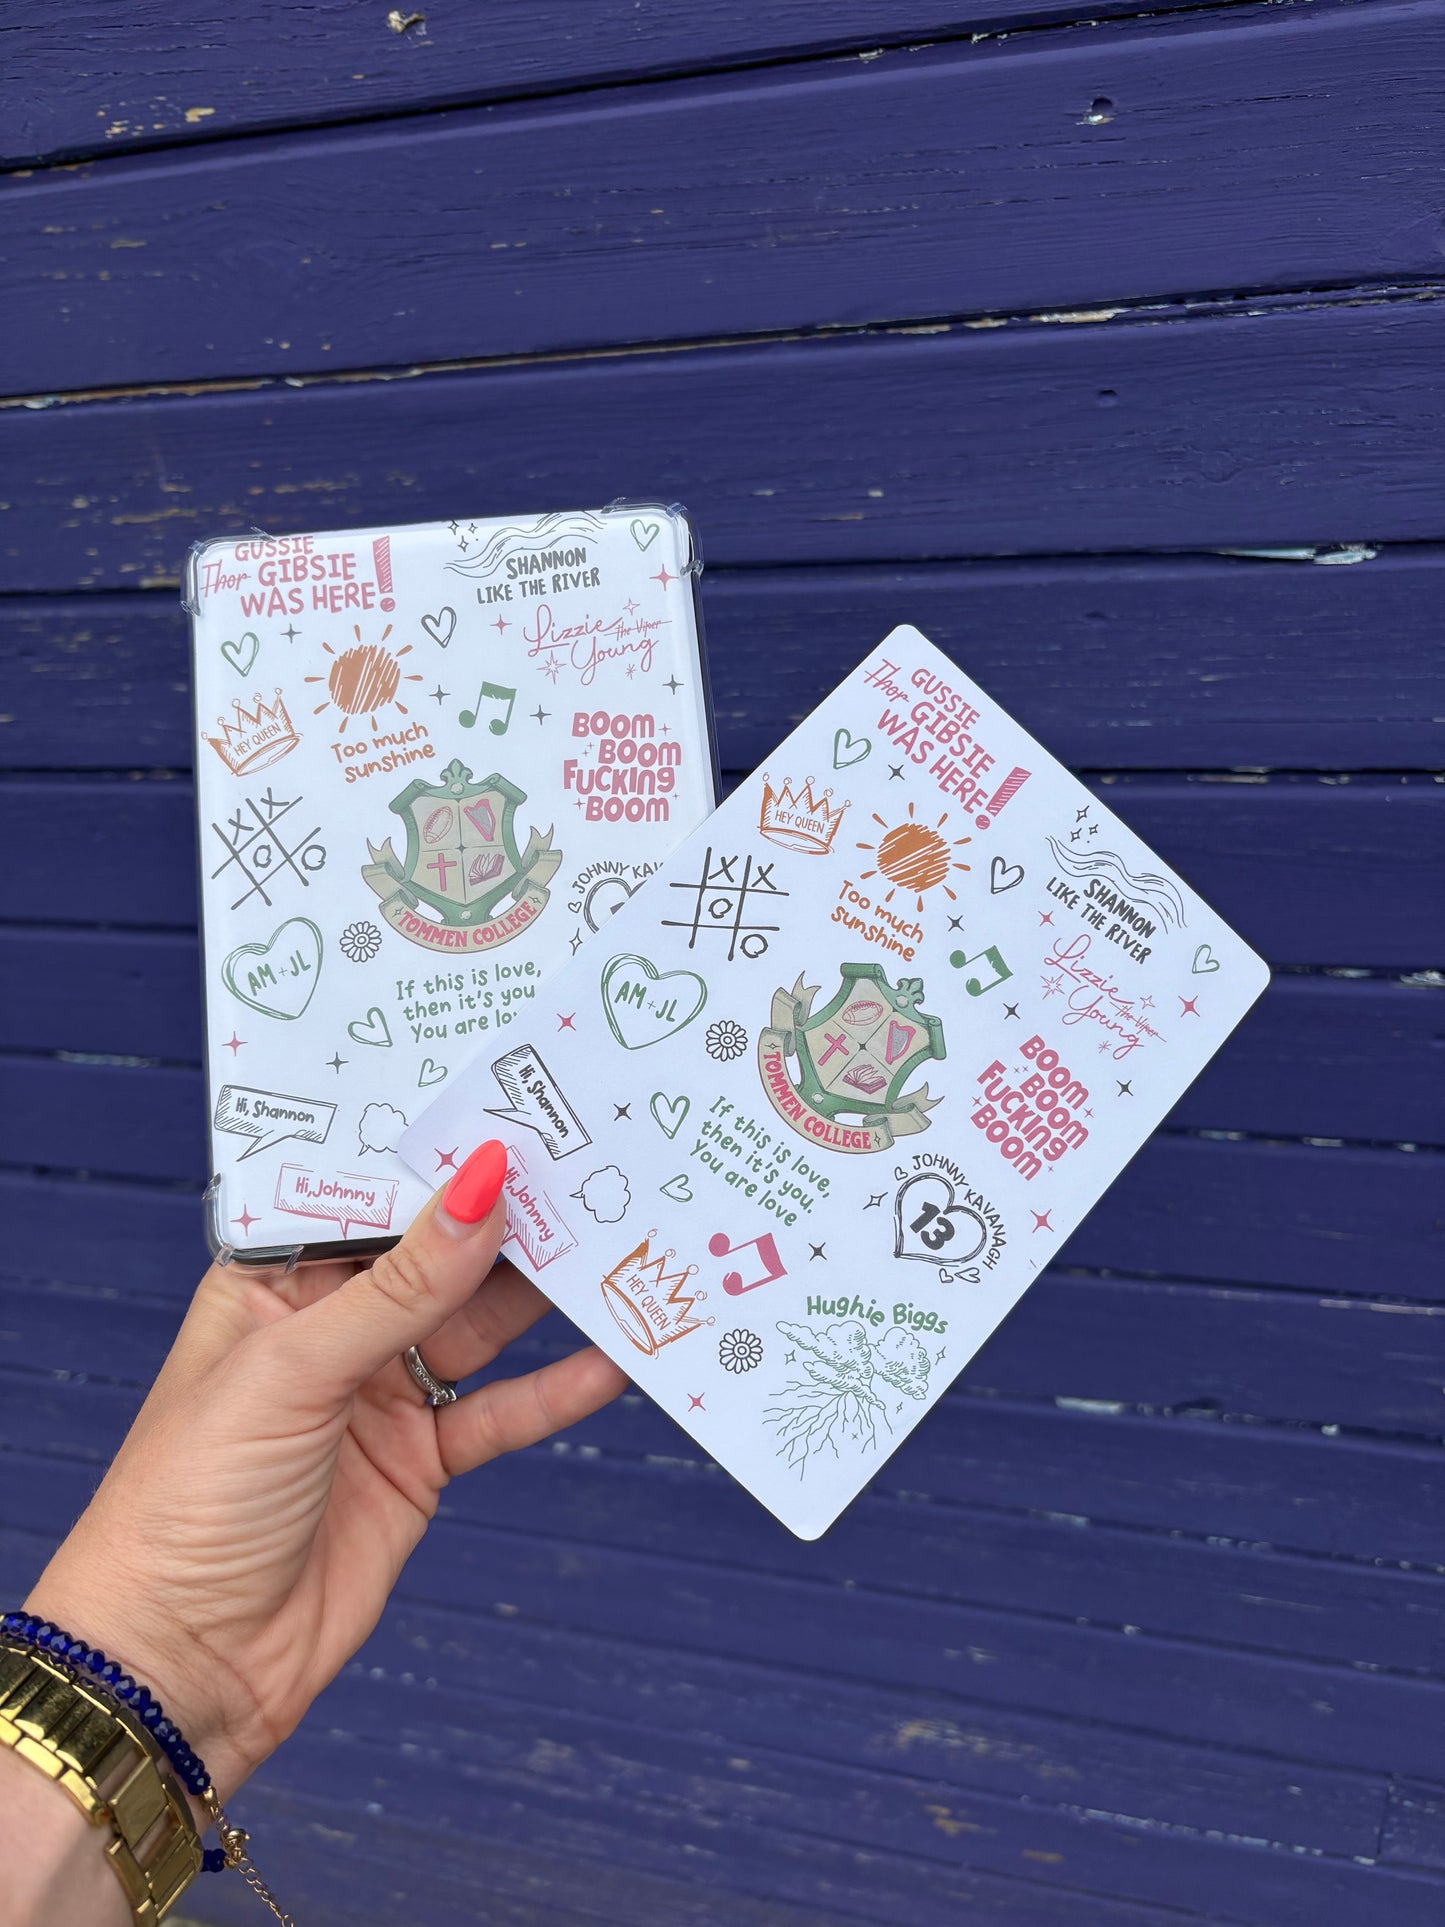 GUSSIE
Thor GIBSIE
WAS HERE!
SHANNON
LIKE THE RIVER
Lizzie
the Viper
Young
HEY QUEEN
Too much
sunshine
BOOM
BOOM
FUCKING
BOOM
JOHNNY KAV
TOMMEN COLLEGE
AM + JL
If this is love,
then it's you
You are lo
Hi, Shannon
Hi, Johnny
X
X
O
O
GUSSIE
Thor GIBSIE
WAS HERE!
HEY QUEEN
Too much
sunshine
SHANNON
LIKE THE RIVER
Lizzie
the Viper
Young
X X
O
O
AM + JL
TOMMEN COLLEGE
BOOM
BOOM
FUCKING
BOOM
If this is love,
then it's you.
You are love
Hi, Shannon
Hi, Johnny
JOHNNY KAVANAGH
13
HEY QUEEN
Hughie Biggs